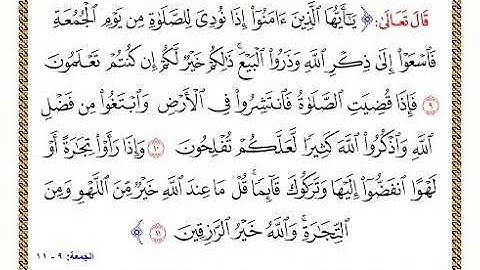 قَالَ تَعَالَى: ﴿ يَٰٓأَيُّهَا ٱلَّذِينَ ءَامَنُوٓا۟ إِذَا نُودِىَ لِلصَّلَوٰةِ مِن يَوْمِ ٱلْجُمُعَةِ
فَٱسْعَوْا۟ إِلَىٰ ذِكْرِ ٱللَّهِ وَذَرُوا۟ ٱلْبَيْعَ ۚ ذَٰلِكُمْ خَيْرٌ لَّكُمْ إِن كُنتُمْ تَعْلَمُونَ
٩ فَإِذَا قُضِيَتِ ٱلصَّلَوٰةُ فَٱنتَشِرُوا۟ فِى ٱلْأَرْضِ وَٱبْتَغُوا۟ مِن فَضْلِ
ٱللَّهِ وَٱذْكُرُوا۟ ٱللَّهَ كَثِيرًا لَّعَلَّكُمْ تُفْلِحُونَ ١٠ وَإِذَا رَأَوْا۟ تِجَٰرَةً أَوْ
لَهْوًا ٱنفَضُّوٓا۟ إِلَيْهَا وَتَرَكُوكَ قَآئِمًا ۚ قُلْ مَا عِندَ ٱللَّهِ خَيْرٌ مِّنَ ٱللَّهْوِ وَمِنَ
ٱلتِّجَٰرَةِ ۚ وَٱللَّهُ خَيْرُ ٱلرَّٰزِقِينَ ١١ ﴾
الجمعة: ٩ - ١١